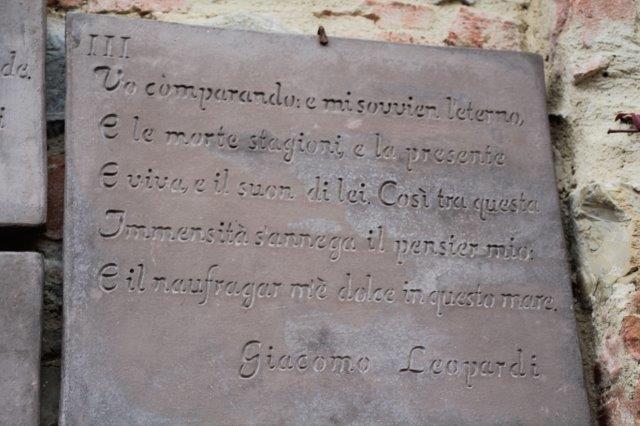 de.
i
III
Vo comparando: e mi sovvien l'eterno,
E le morte stagioni, e la presente
E viva, e il suon di lei. Così tra questa
Immensità s'annega il pensier mio:
E il naufragar m'è dolce in questo mare.
Giacomo Leopardi